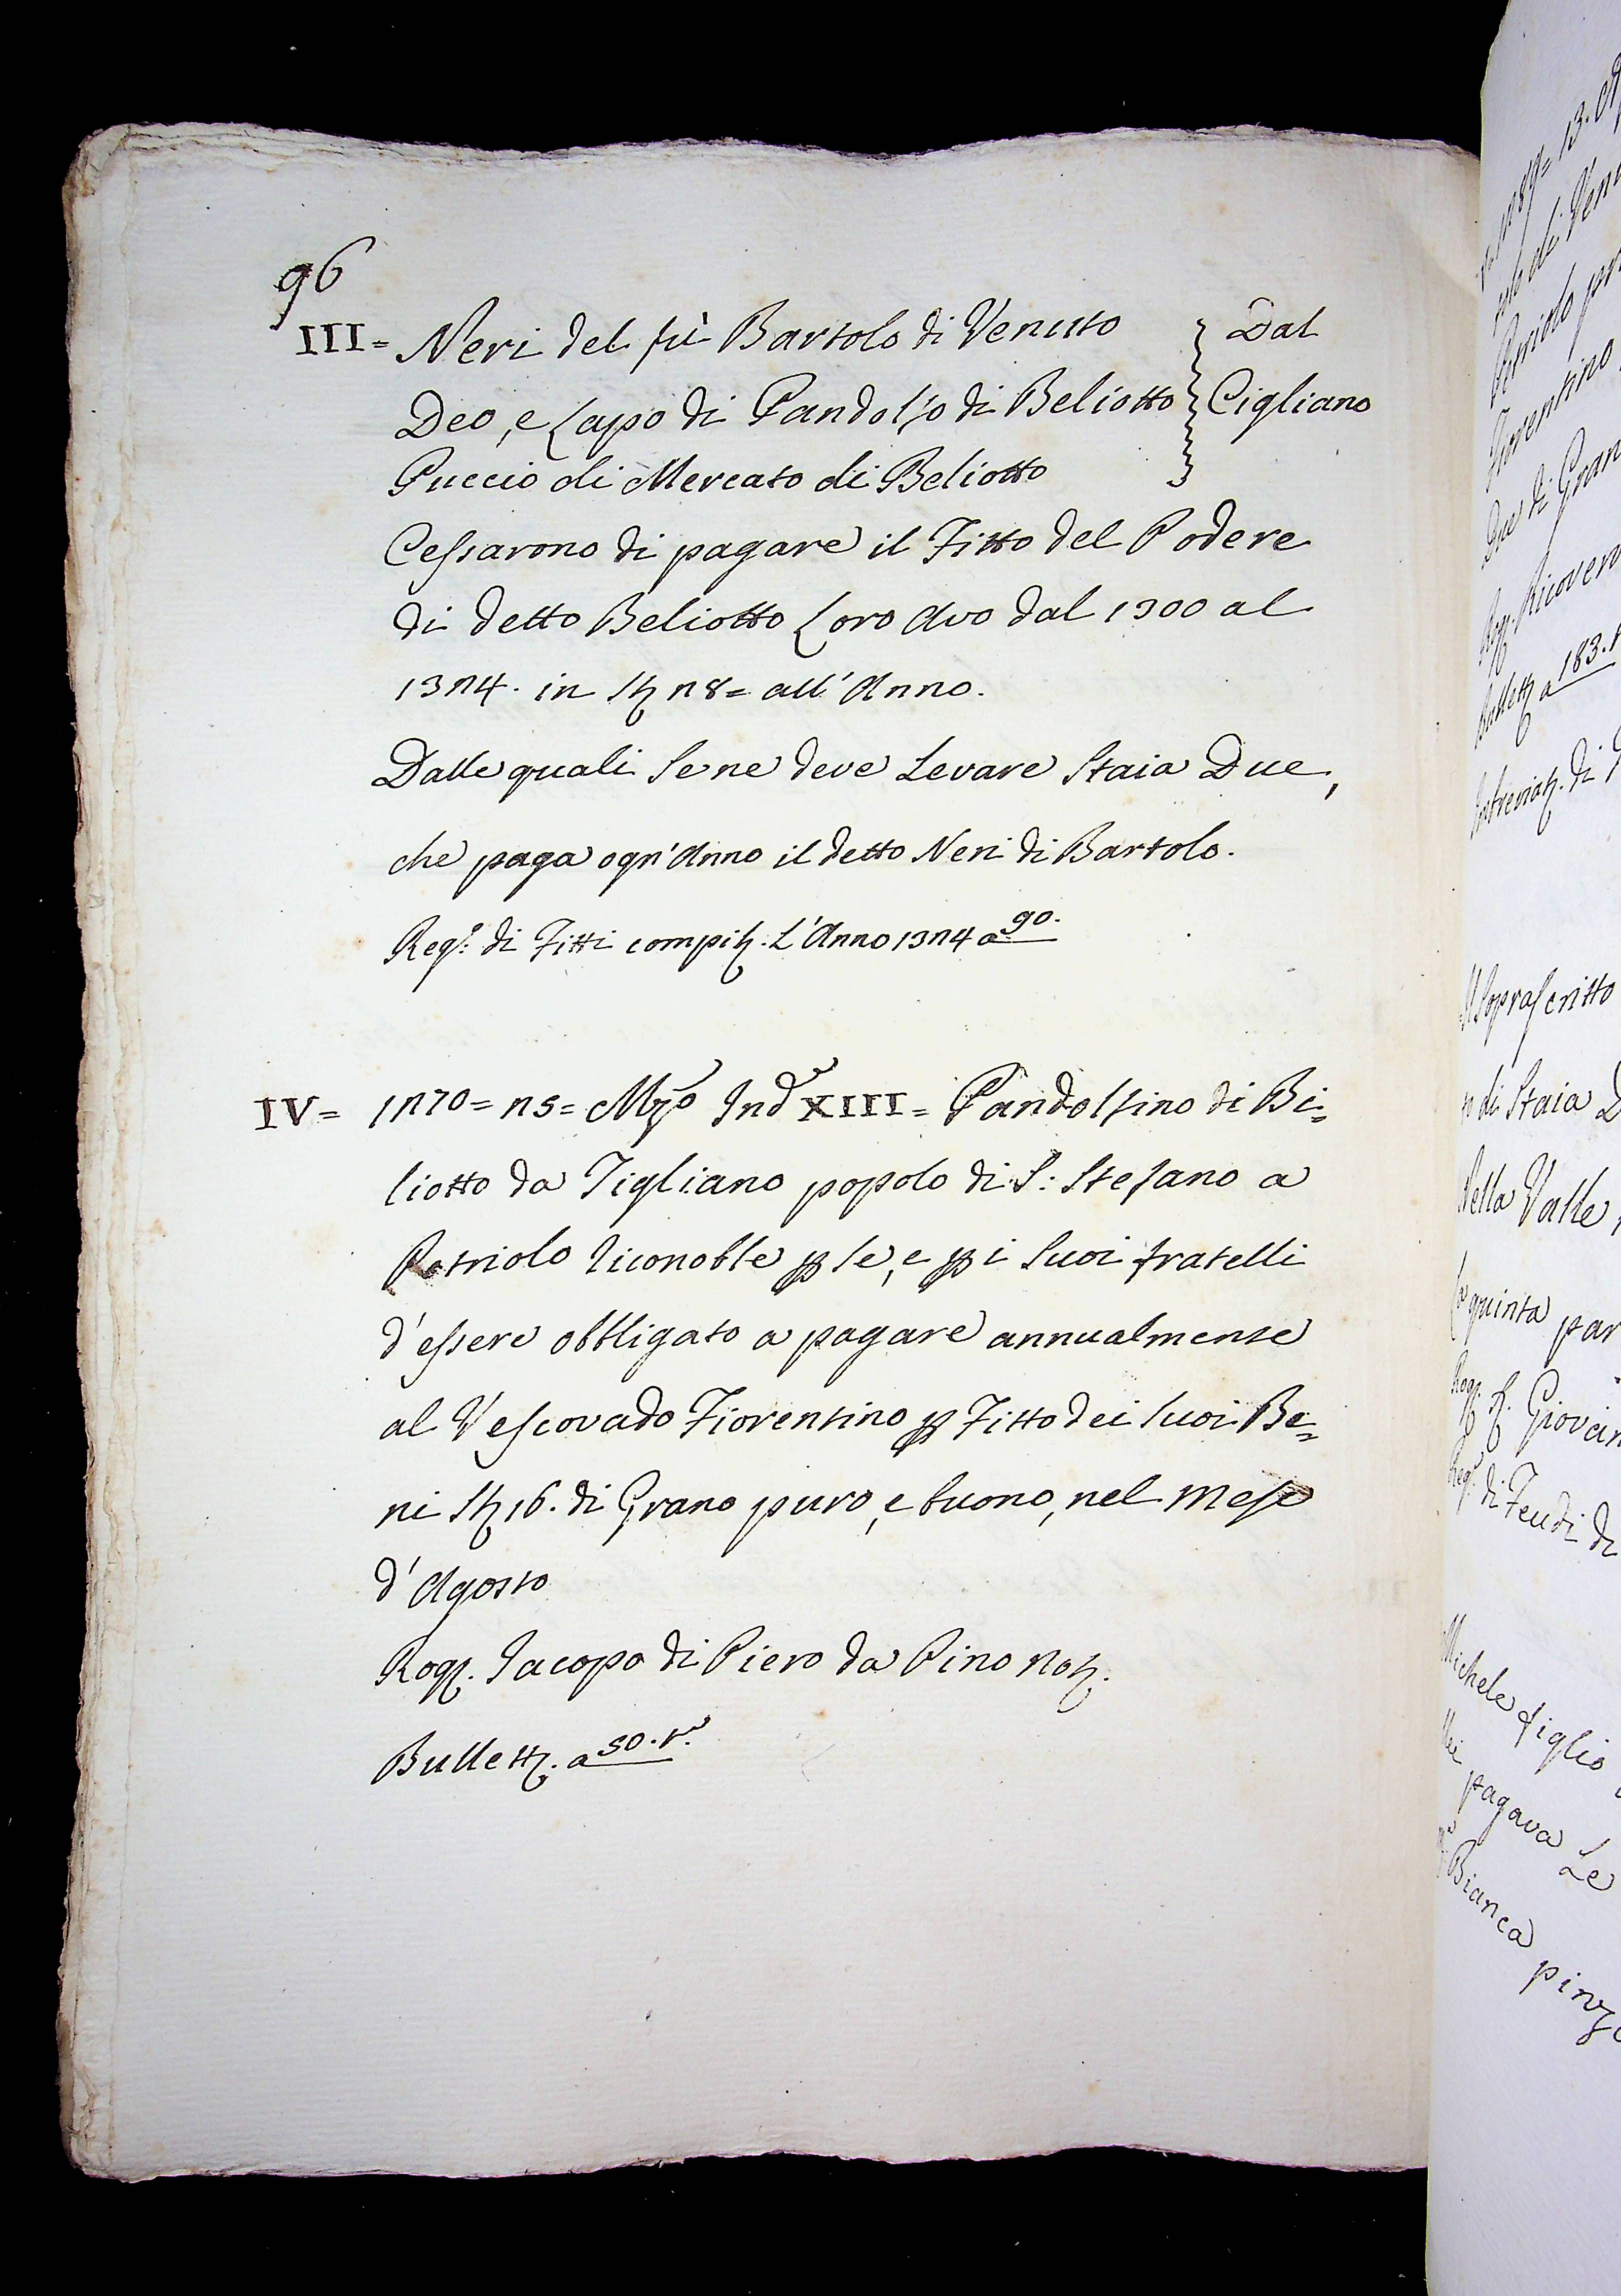 96
III = Neri del fù Bartolo di Venuto } Dal
Deo, e Lapo di Pandolfo di Beliotto } Cigliano
Puccio di Mercato di Beliotto
Cessarono di pagare il Fitto del Podere
di detto Beliotto Loro Avo dal 1300 al
1324. in St 28 = all'Anno.
Dalle quali se ne deve Levare Staia Due,
che paga ogn'Anno il detto Neri di Bartolo.
Reg.° di Fitti compit. L'Anno 1324 a 90.
IV = 1270 = 25 = Mzo Ind XIII = Pandolfino di Bi=
liotto da Tigliano popolo di S: Stefano a
riconobbe p se, e p i suoi fratelli
d'essere obbligato a pagare annualmente
al Vescovado Fiorentino p Fitto dei suoi Be=
ni St 16. di Grano puro, e buono, nel Mese
d'Agosto
Rog. Iacopo di Piero da Pino Not.
Bullett. a 50. r.
13.
di
Fiorentino
Due di Gran
Bullett a 183. r
di
soprascritto
di Staia
Nella Valle
quinta par
Rog. S. Giovan
Reg.° di Feudi di
Michele figlio
pagava Le
Bianca